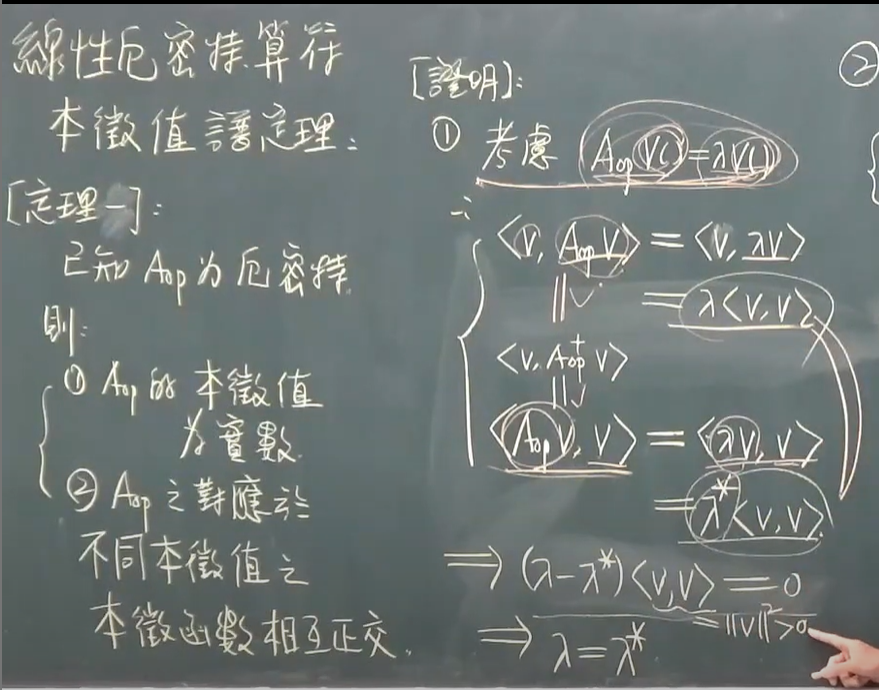 線性厄密特算符
本徵值譜定理:
[定理一]:
已知 Aop 為厄密特.
則:
① Aop 的本徵值
為實數.
② Aop 之對應於
不同本徵值之
本徵函數相互正交.
[證明]:
① 考慮 Aop V() = λV()
∴
<V, Aop V> = <V, λV>
|| ✓ = λ<V, V>
<V, Aop† V>
|| ✓
<Aop V, V> = <λV, V>
= λ*<V, V>
⇒ (λ-λ*)<V, V> = 0
= ||V||² > 0
⇒ λ = λ*
②